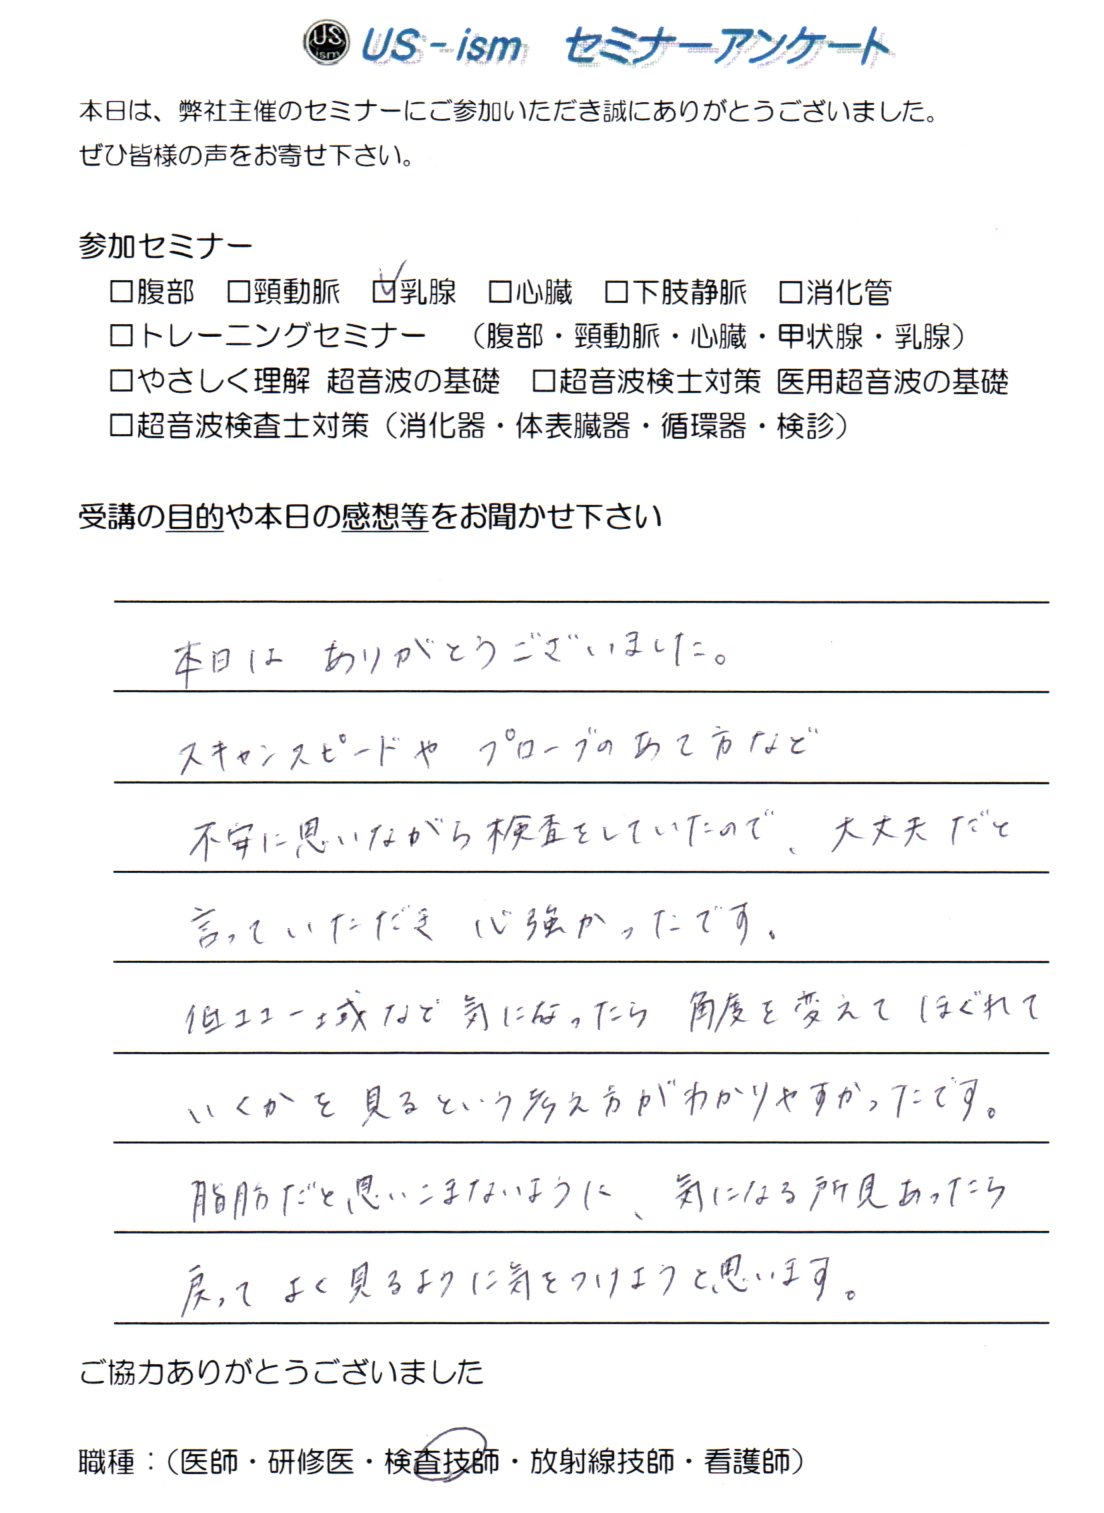 US ism US-ism セミナーアンケート
本日は、弊社主催のセミナーにご参加いただき誠にありがとうございました。
ぜひ皆様の声をお寄せ下さい。
参加セミナー
□腹部 □頸動脈 ☑乳腺 □心臓 □下肢静脈 □消化管
□トレーニングセミナー （腹部・頸動脈・心臓・甲状腺・乳腺）
□やさしく理解 超音波の基礎 □超音波検士対策 医用超音波の基礎
□超音波検査士対策（消化器・体表臓器・循環器・検診）
受講の目的や本日の感想等をお聞かせ下さい
本日は ありがとうございました。
スキャンスピードや プローブのあて方など
不安に思いながら検査をしていたので、大丈夫だと
言っていただき 心強かったです。
低エコー域など気になったら 角度を変えて ほぐれて
いくかを見るという考え方がわかりやすかったです。
脂肪だと思いこまないように、気になる所見あったら
戻って よく見るように気をつけようと思います。
ご協力ありがとうございました
職種：（医師・研修医・検査技師・放射線技師・看護師）